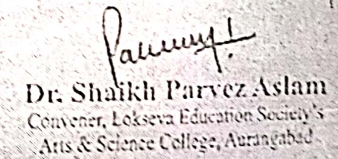 Dr. Shaikh Parvez Aslam
Convener, Lokseva Education Society's
Arts & Science College, Aurangabad